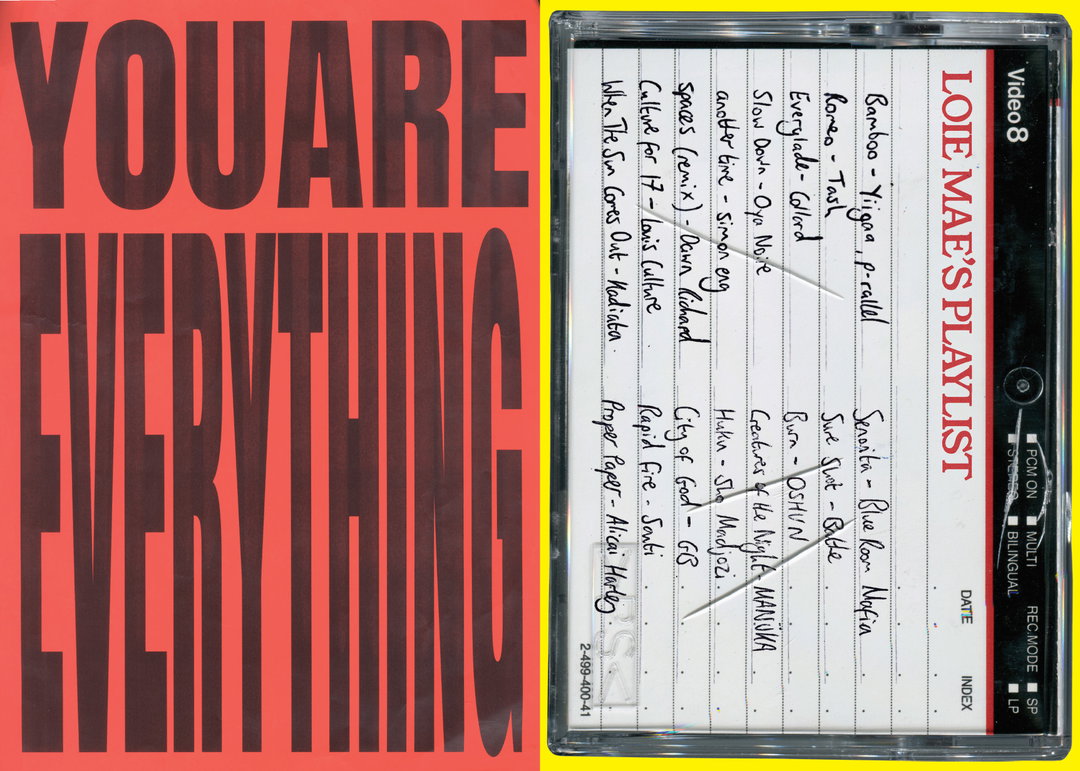 YOU ARE
EVERYTHING
Video8
PCM ON MULTI REC.MODE SP
STEREO BILINGUAL LP
LOIE MAE'S PLAYLIST
DATE INDEX
Bamboo - Yiigaa, p-rallel
Romeo - Tash
Everglade - Collard
Slow Down - Oya Noire
another time - simon eng
spaces (remix) - Dawn Richard
Culture for 17 - Louis Culture.
When The Sun Comes Out - Kadiata.
Senorita - Blue Room Mafia
Sure Shot -
Burn - OSHUN
Creatures of the Night - MANÜKA
Huku - Sho Madjozi.
City of God - GB
Rapid Fire - Santi
Proper Paper - Alicai Harley.
2-499-400-41